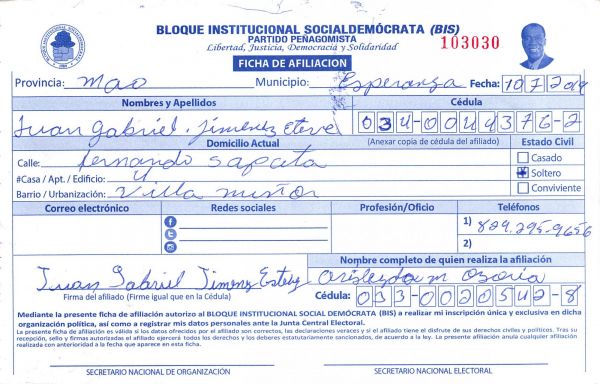 BLOQUE INSTITUCIONAL SOCIALDEMÓCRATA (BIS)
PARTIDO PEÑAGOMISTA
Libertad, Justicia, Democracia y Solidaridad
103030
FICHA DE AFILIACION
Provincia: Mao Municipio: Esperanza Fecha:
Nombres y Apellidos Cédula
Juan Gabriel Jimenez Esteve 034-0044376-2
Domicilio Actual (Anexar copia de cédula del afiliado) Estado Civil
Calle: fernando sapata Casado
#Casa / Apt. / Edificio: 4 Soltero
Barrio / Urbanización: Villa Conviviente
Correo electrónico Redes sociales Profesión/Oficio Teléfonos
1) 829.295-9656
2)
Nombre completo de quien realiza la afiliación
Juan Gabriel Jimenez Estevez m Osoria
Firma del afiliado (Firme igual que en la Cédula) Cédula: 033-0020542-8
Mediante la presente ficha de afiliación autorizo al BLOQUE INSTITUCIONAL SOCIAL DEMÓCRATA (BIS) a realizar mi inscripción única y exclusiva en dicha
organización política, así como a registrar mis datos personales ante la Junta Central Electoral.
La presente ficha de afiliación es válida si los datos ofrecidos por el afiliado son correctos, las declaraciones veraces y si el afiliado tiene el disfrute de sus derechos civiles y políticos. Tras su
recepción, sello y firmas autorizadas el afiliado ejercerá todos los derechos y los deberes estatutariamente sancionados, de acuerdo a la ley. La presente afiliación anula cualquier afiliación
realizada con anterioridad a la fecha que aparece en esta ficha.
SECRETARIO NACIONAL DE ORGANIZACIÓN SECRETARIO NACIONAL ELECTORAL